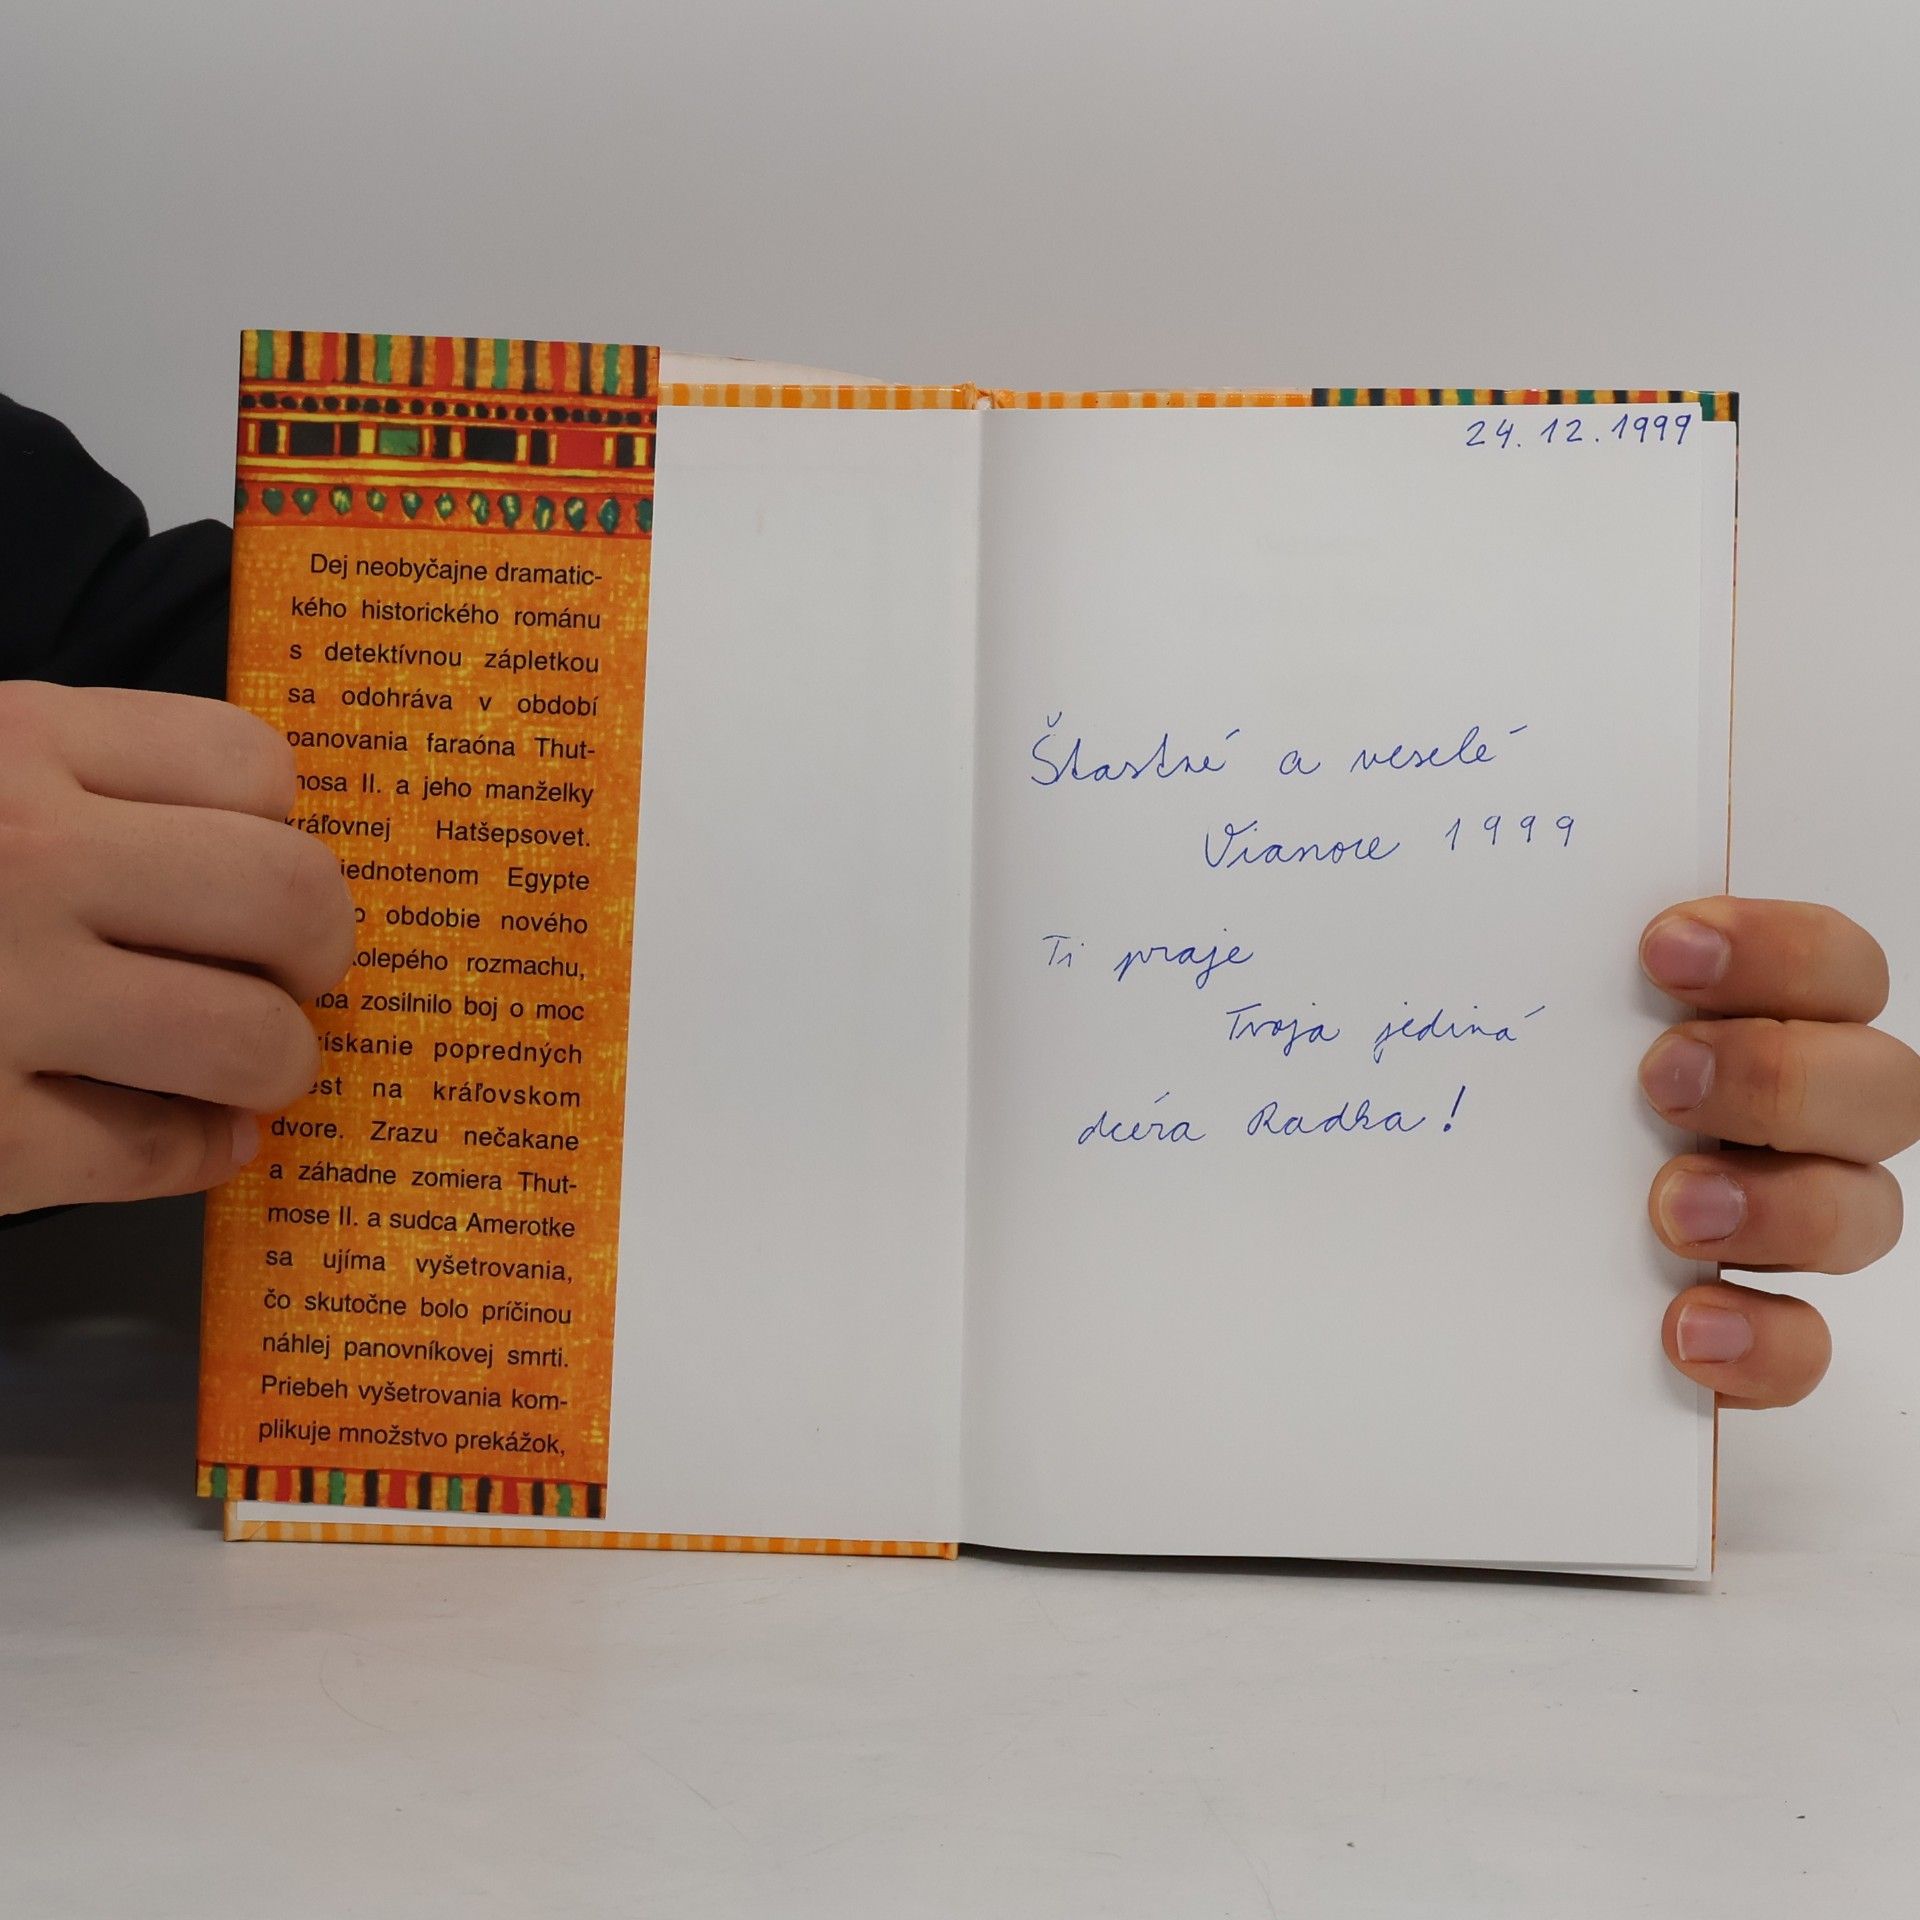 Dej neobyčajne dramatic-
kého historického románu
s detektívnou zápletkou
sa odohráva v období
panovania faraóna Thut-
mosa II. a jeho manželky
kráľovnej Hatšepsovet.
Egypte
obdobie nového
rozmachu,
zosilnilo boj o moc
popredných
na kráľovskom
dvore. Zrazu nečakane
a záhadne zomiera Thut-
mose II. a sudca Amerotke
sa ujíma vyšetrovania,
čo skutočne bolo príčinou
náhlej panovníkovej smrti.
Priebeh vyšetrovania kom-
plikuje množstvo prekážok,
24.12.1999
Štastné a veselé
Vianoce 1999
Ti praje
Tvoja jediná
dcéra Radka!